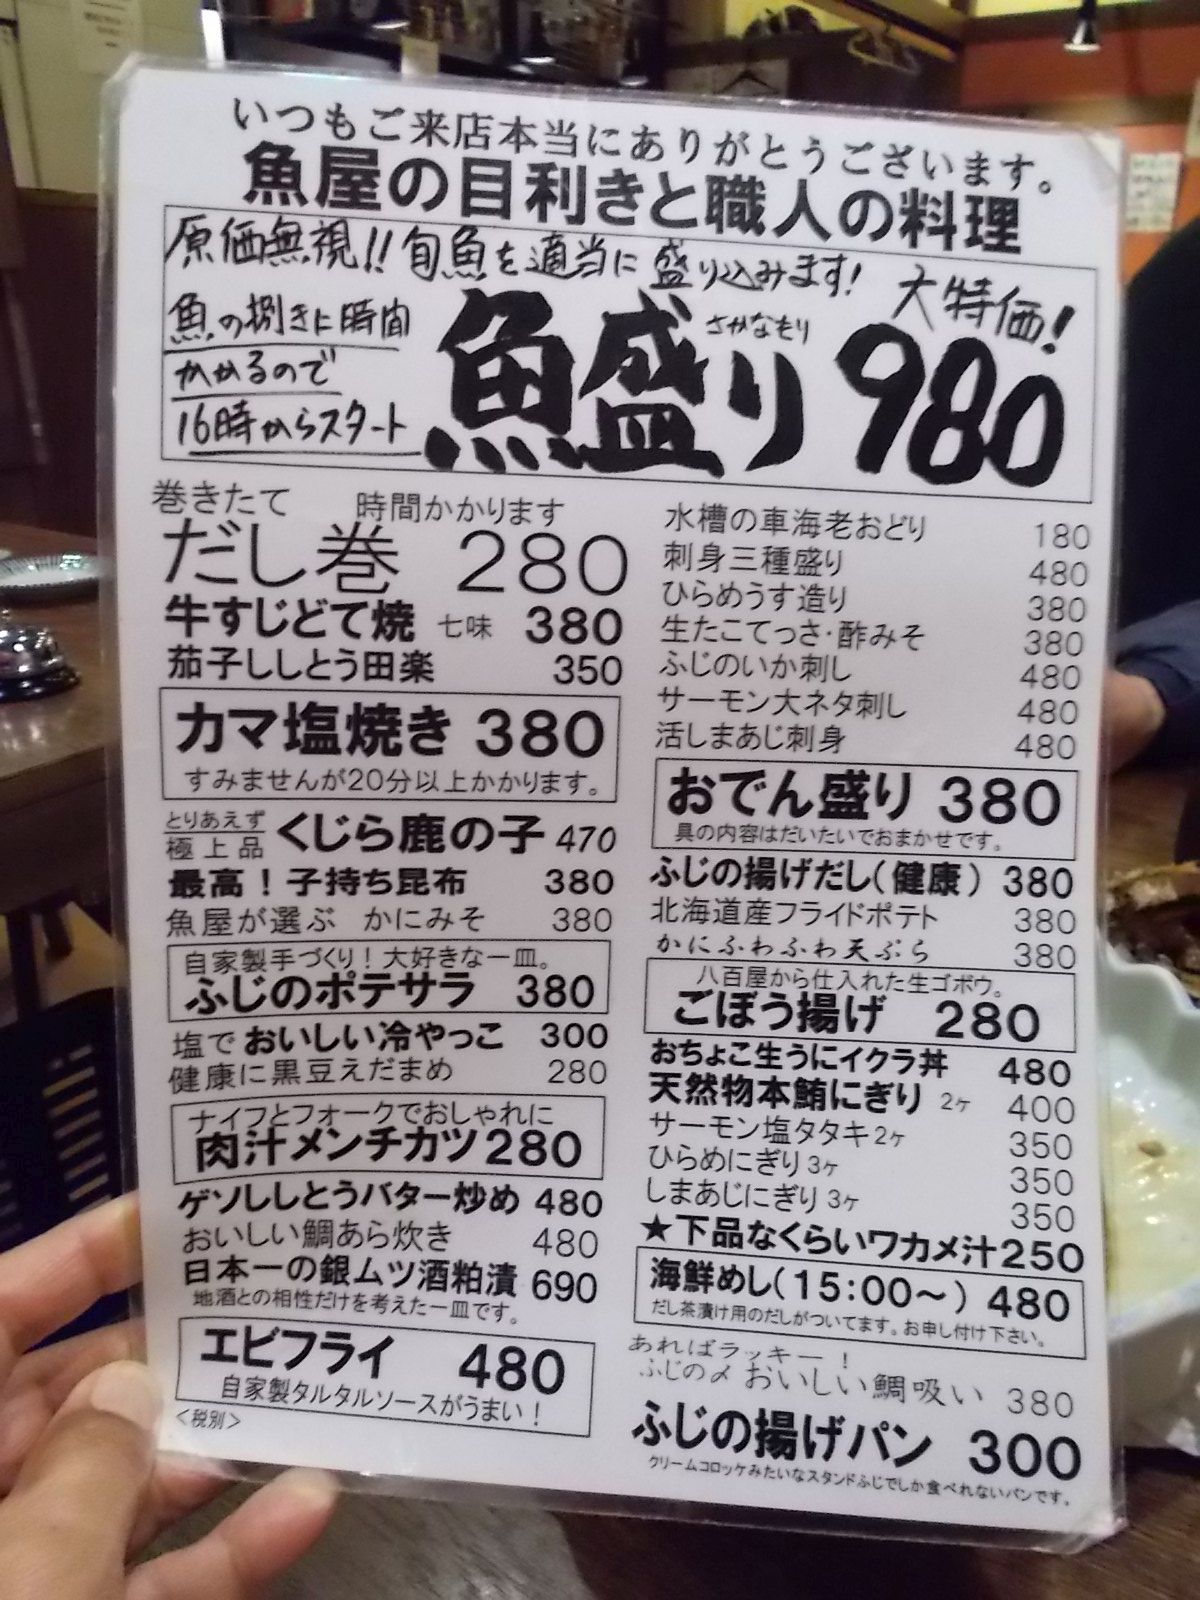 いつもご来店本当にありがとうございます。
魚屋の目利きと職人の料理
原価無視!! 旬魚を適当に盛り込みます!
大特価!
魚の捌きに時間
かかるので
16時からスタート
さかなもり
魚盛り 980
巻きたて 時間かかります
だし巻 280
牛すじどて焼 七味 380
茄子ししとう田楽 350
カマ塩焼き 380
すみませんが20分以上かかります。
とりあえず
極上品 くじら鹿の子 470
最高！子持ち昆布 380
魚屋が選ぶ かにみそ 380
自家製手づくり！大好きな一皿。
ふじのポテサラ 380
塩でおいしい冷やっこ 300
健康に黒豆えだまめ 280
ナイフとフォークでおしゃれに
肉汁メンチカツ 280
ゲソししとうバター炒め 480
おいしい鯛あら炊き 480
日本一の銀ムツ酒粕漬 690
地酒との相性だけを考えた一皿です。
エビフライ 480
自家製タルタルソースがうまい！
＜税別＞
水槽の車海老おどり 180
刺身三種盛り 480
ひらめうす造り 380
生たこてっさ・酢みそ 380
ふじのいか刺し 480
サーモン大ネタ刺し 480
活しまあじ刺身 480
おでん盛り 380
具の内容はだいたいでおまかせです。
ふじの揚げだし（健康） 380
北海道産フライドポテト 380
かにふわふわ天ぷら 380
八百屋から仕入れた生ゴボウ。
ごぼう揚げ 280
おちょこ生うにイクラ丼 480
天然物本鮪にぎり 2ヶ 400
サーモン塩タタキ 2ヶ 350
ひらめにぎり 3ヶ 350
しまあじにぎり 3ヶ 350
★下品なくらいワカメ汁 250
海鮮めし（15：00〜） 480
だし茶漬け用のだしがついてます。お申し付け下さい。
あればラッキー！
ふじの〆 おいしい鯛吸い 380
ふじの揚げパン 300
クリームコロッケみたいなスタンドふじでしか食べれないパンです。